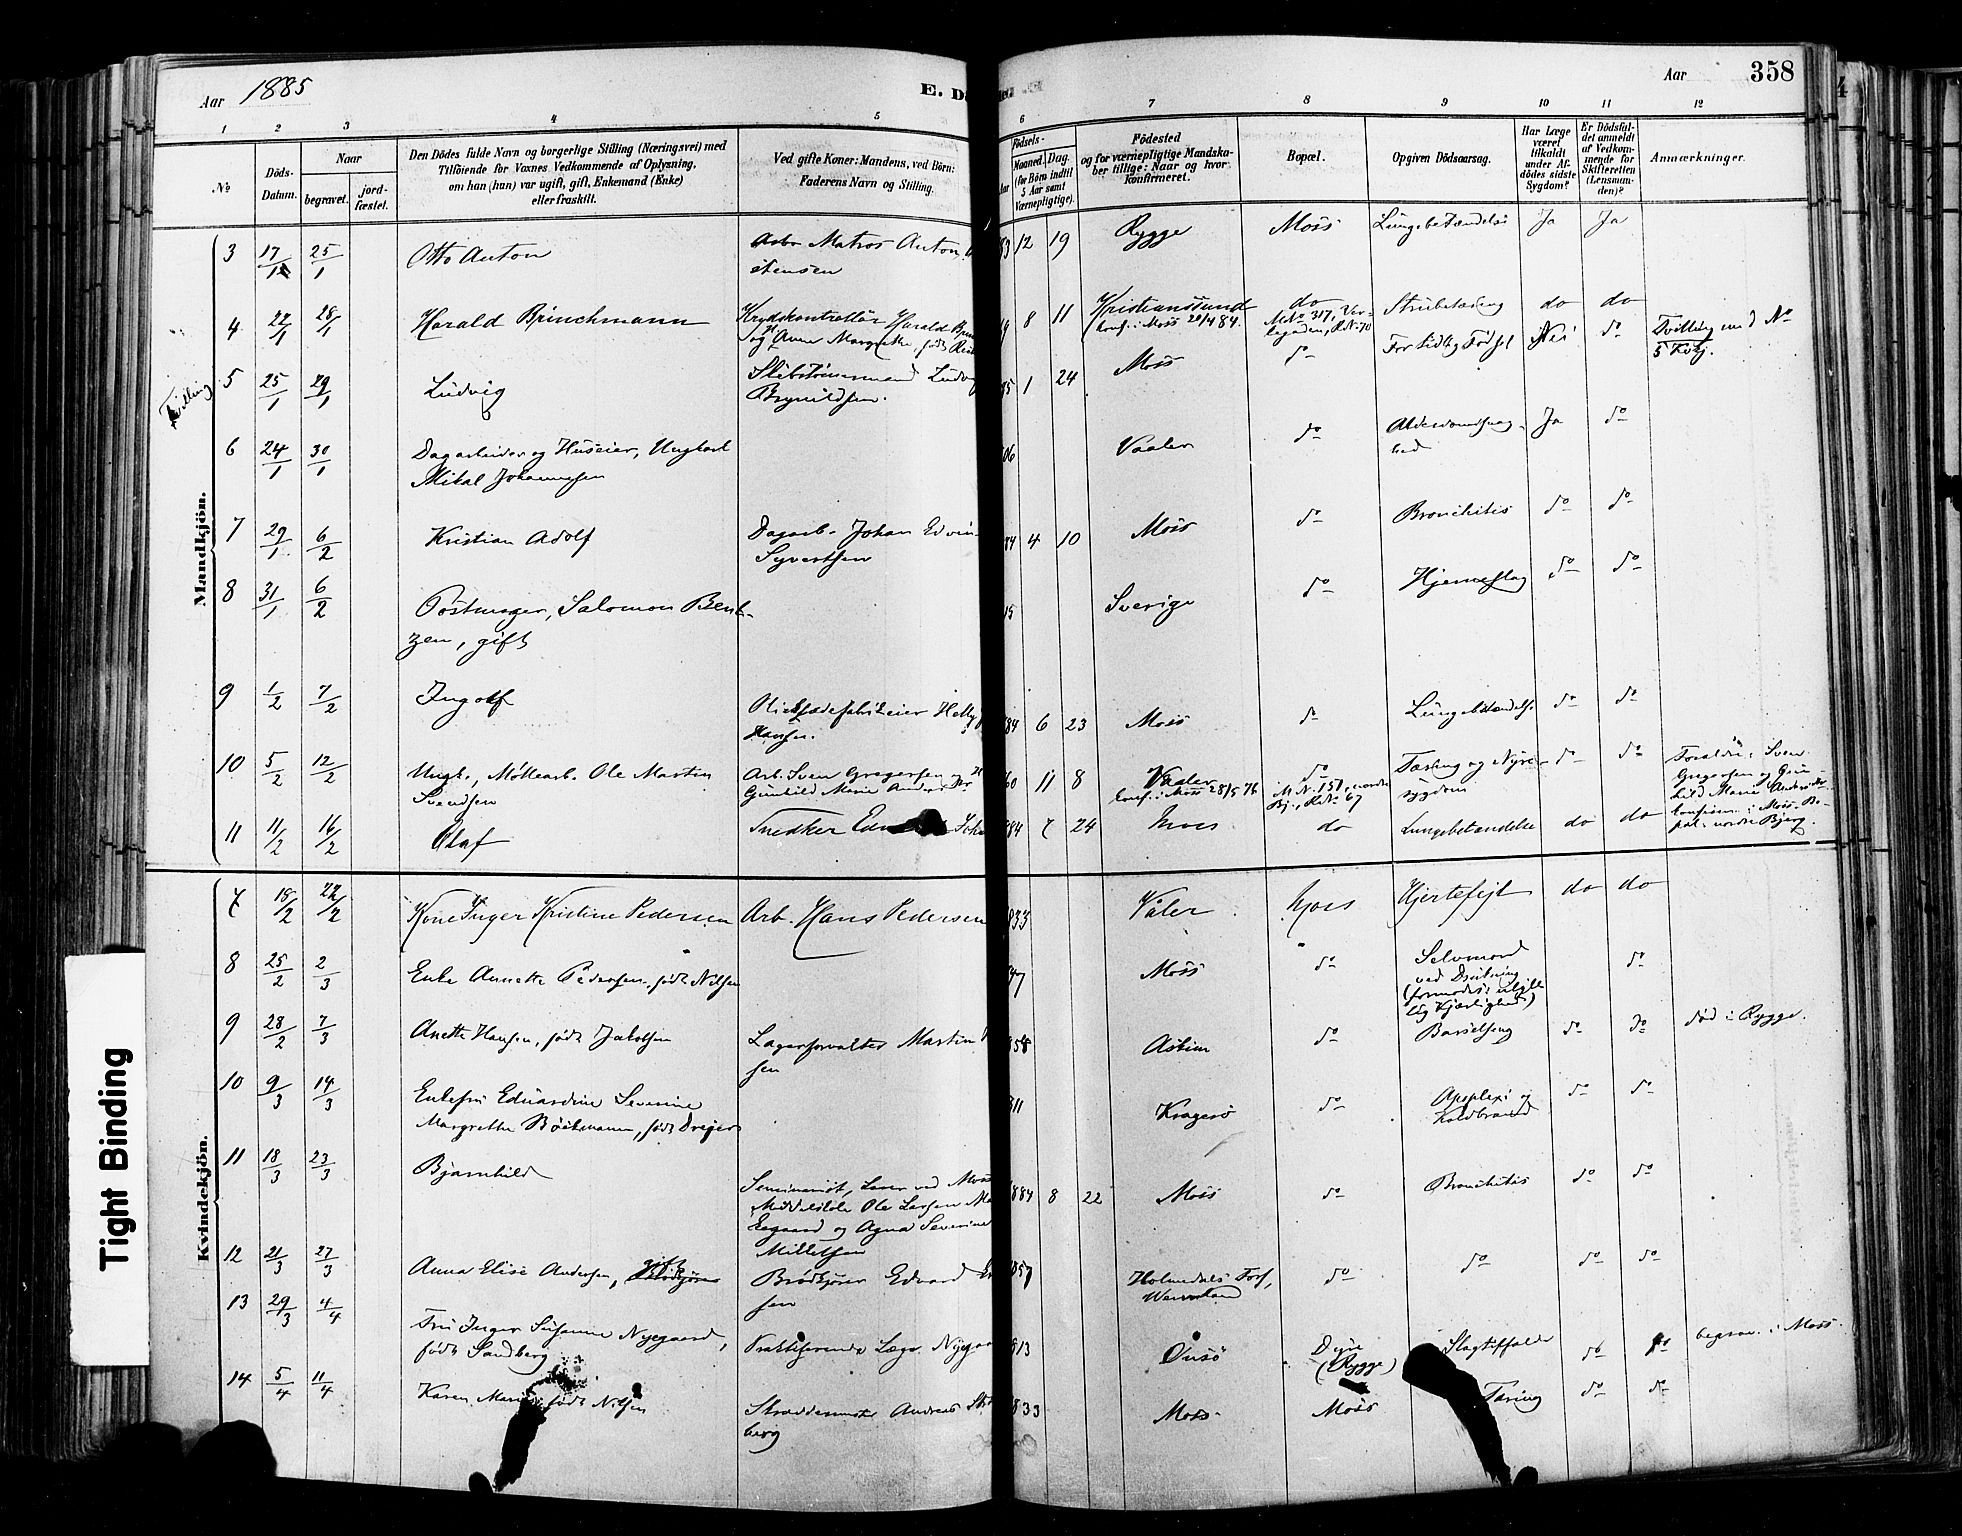 Aar 1885
E. Dö
Aar 358
1 2 3 4 5 6 7 8 9 10 11 12
No
Döds-Datum.
Naar
begravet.
jordfæstet.
Den Dödes fulde Navn og borgerlige Stilling (Næringsvei) med
Tilföiende for Voxnes Vedkommende af Oplysning,
om han (hun) var ugift, gift, Enkemand (Enke)
eller fraskilt.
Ved gifte Koner: Mandens, ved Börn:
Faderens Navn og Stilling.
Födsels-
Aar Maaned. Dag.
(for Börn indtil
5 Aar samt
Værnepligtige).
Födested
og for værnepligtige Mandskaber tillige: Naar og hvor
konfirmeret.
Bopæl.
Opgiven Dödsaarsag.
Har Læge
været
tilkaldt
under Afdödes sidste
Sygdom?
Er Dödsfaldet anmeldt
af Vedkommende for
Skifteretten
(Lensmanden)?
Anmærkninger.
Mandkjön.
3 17/1 25/1 Otto Anton Matros Anton 83 12 19 Rygge Moss Lungebetændelse Ja Ja
stensen
4 22/1 28/1 Harald Brinchmann Krydskontrollör Harald 8 11 Kristianssund do Strubetæring do do
og Anne Margrethe, födt konf. i Moss 20/4 84. M.No 317, R.No 70
Tvilling 5 25/1 29/1 Ludvig Skibstömmermand Ludvig 85 1 24 Moss do For tidlig Födsel Nei do Tvilling med No
Brynildsen. 5 Kvkj.
6 24/1 30/1 Dagarbeider og Huseier, Ungkarl 06 Vaaler do Alderdomssvaghed Ja do
Mikal Johannessen
7 29/1 6/2 Kristian Adolf Dagarb. Johan Edvin 84 4 10 Moss do Bronchitis do do
Syvertsen
8 31/1 6/2 Salomon Bentzen, gift Sverige do Hjerneslag do do
9 1/2 7/2 Ingolf Oliekledefabrikeier Helly 84 6 23 Moss do Lungebetændelse do do
Hansen.
10 5/2 12/2 Ungk., Möllearb. Ole Martin Arb. Sven Gregersen og 60 11 8 Vaaler do Tæring og Nyresygdom do do Forældre: Sven
Svendsen Gunhild Marie konf. i Moss 28/5 76 M.No 157, nordre Gregersen og Gunhild Marie
Bj., R.No 67 konfirm. i Moss. Bopæl: nordre Bjerg.
11 11/2 16/2 Olaf Snedker 84 7 24 Moss do Lungebetændelse do do
Kvindekjön.
7 18/2 22/2 Kone Inger Kristine Pedersen Arb. Hans Pedersen 833 Våler Moss Hjertefejl do do
8 25/2 2/3 Enke Annette Pedersen, födt Nilsen 47 Moss do Selvmord do
ved Drukning
(formodes: ulykkelig Kjærlighed)
9 28/2 7/3 Anette Hansen, födt Jakobsen Lagerforvalter Martin 858 Askim do Barselseng do do död i Rygge.
sen
10 9/3 14/3 Enkefru Eduardine Severine 811 Kragerö do Apoplexi og do do
Margrethe Böckmann, födt Dreyer Koldbrand
11 18/3 23/3 Bjarnhild Seminarist, Lærer ved Moss 884 8 22 Moss do Bronchitis do do
Middelskole Ole Larsen
og Agna Severine
12 21/3 27/3 Anna Elise Andersen, gift Brödkjörer Edvard 857 Holmedals Fors, do do do do
sen Wermland
13 29/3 4/4 Fru Inger Susanne Nyegaard, Praktiserende Læge Nyegaa 813 Onsö Dyre Slagtilfælde do do begrav. i Moss.
födt Sandberg (Rygge)
14 5/4 11/4 Karen födt Nilsen Skræddermester Andreas 833 Moss Moss Tæring do do
berg
Tight Binding